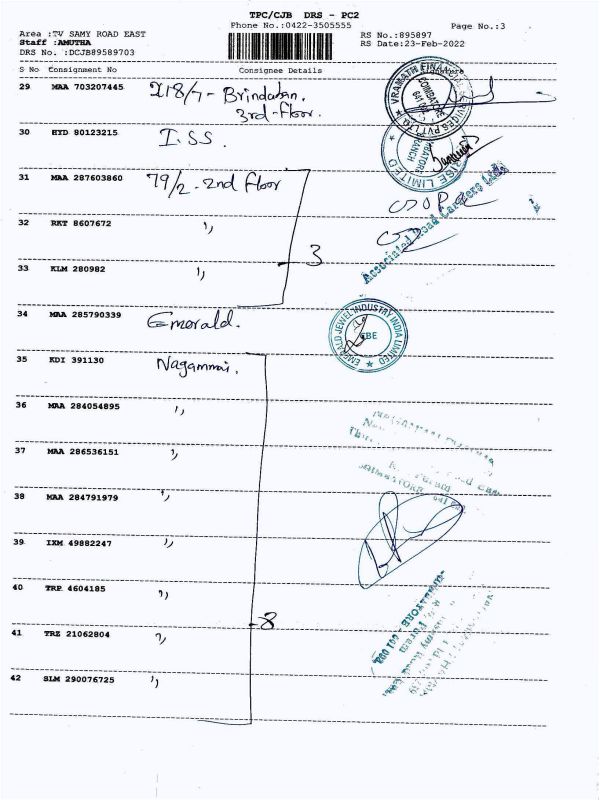 TPC/CJB DRS - PC2
Phone No.:0422-3505555
Page No.:3
Area :TV SAMY ROAD EAST
RS No.:895897
Staff :AMUTHA
RS Date:23-Feb-2022
DRS No. :DCJB89589703
S No Consignment No Consignee Details
29 MAA 703207445 218/7 - Brindavan.
3rd-floor.
VRAMATH FINANCIAL SERVICES PVT LTD
30 HYD 80123215 I.SS.
BRANCH
LIMITED
31 MAA 287603860 79/2 - 2nd floor
32 RKT 8607672 ,,
Associated Road Carriers Ltd
33 KLM 280982 ,,
3
34 MAA 285790339 Emerald.
EMERALD JEWEL INDUSTRY INDIA LIMITED
CBE
35 KDI 391130 Nagammai.
36 MAA 284054895 ,,
37 MAA 286536151 ,,
38 MAA 284791979 ,,
39 IXM 49882247 ,,
40 TRP 4604185 ,,
8
41 TRZ 21062804 ,,
42 SLM 290076725 ,,